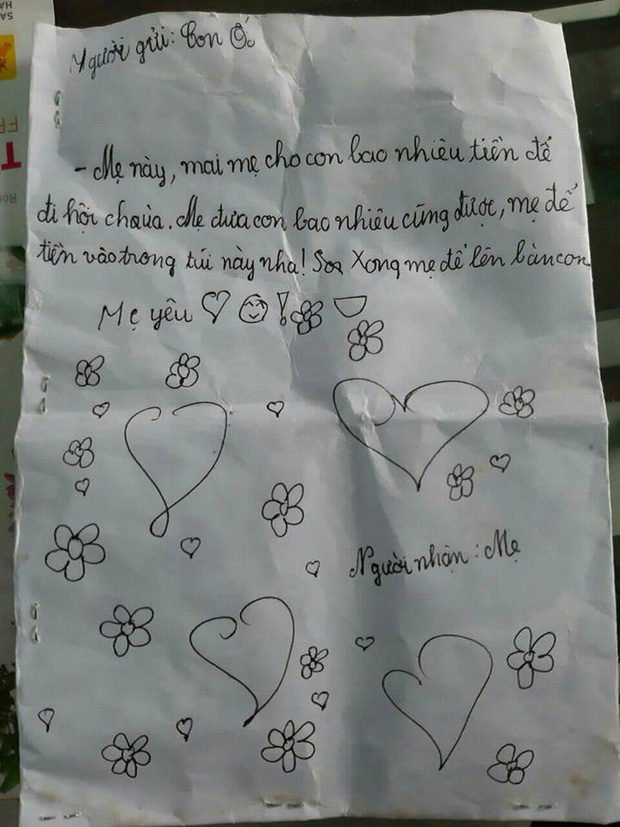 Người gửi: Con Ố
- Mẹ này, mai mẹ cho con bao nhiêu tiền để
đi hội chaùa. Mẹ đưa con bao nhiêu cũng được, mẹ để
tiền vào trong túi này nha! Soa Xong mẹ để lên bàn con
Mẹ yêu
Người nhận: Mẹ